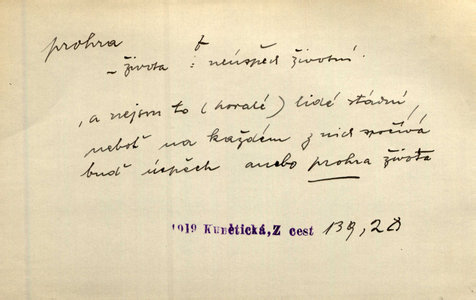 prohra
– života : neúspěch životní.
„a nejsou to (horalé) lidé stádní,
neboť na každém z nich spočívá
buď úspěch anebo prohra života
1919 Kunětická, Z cest 139, 28